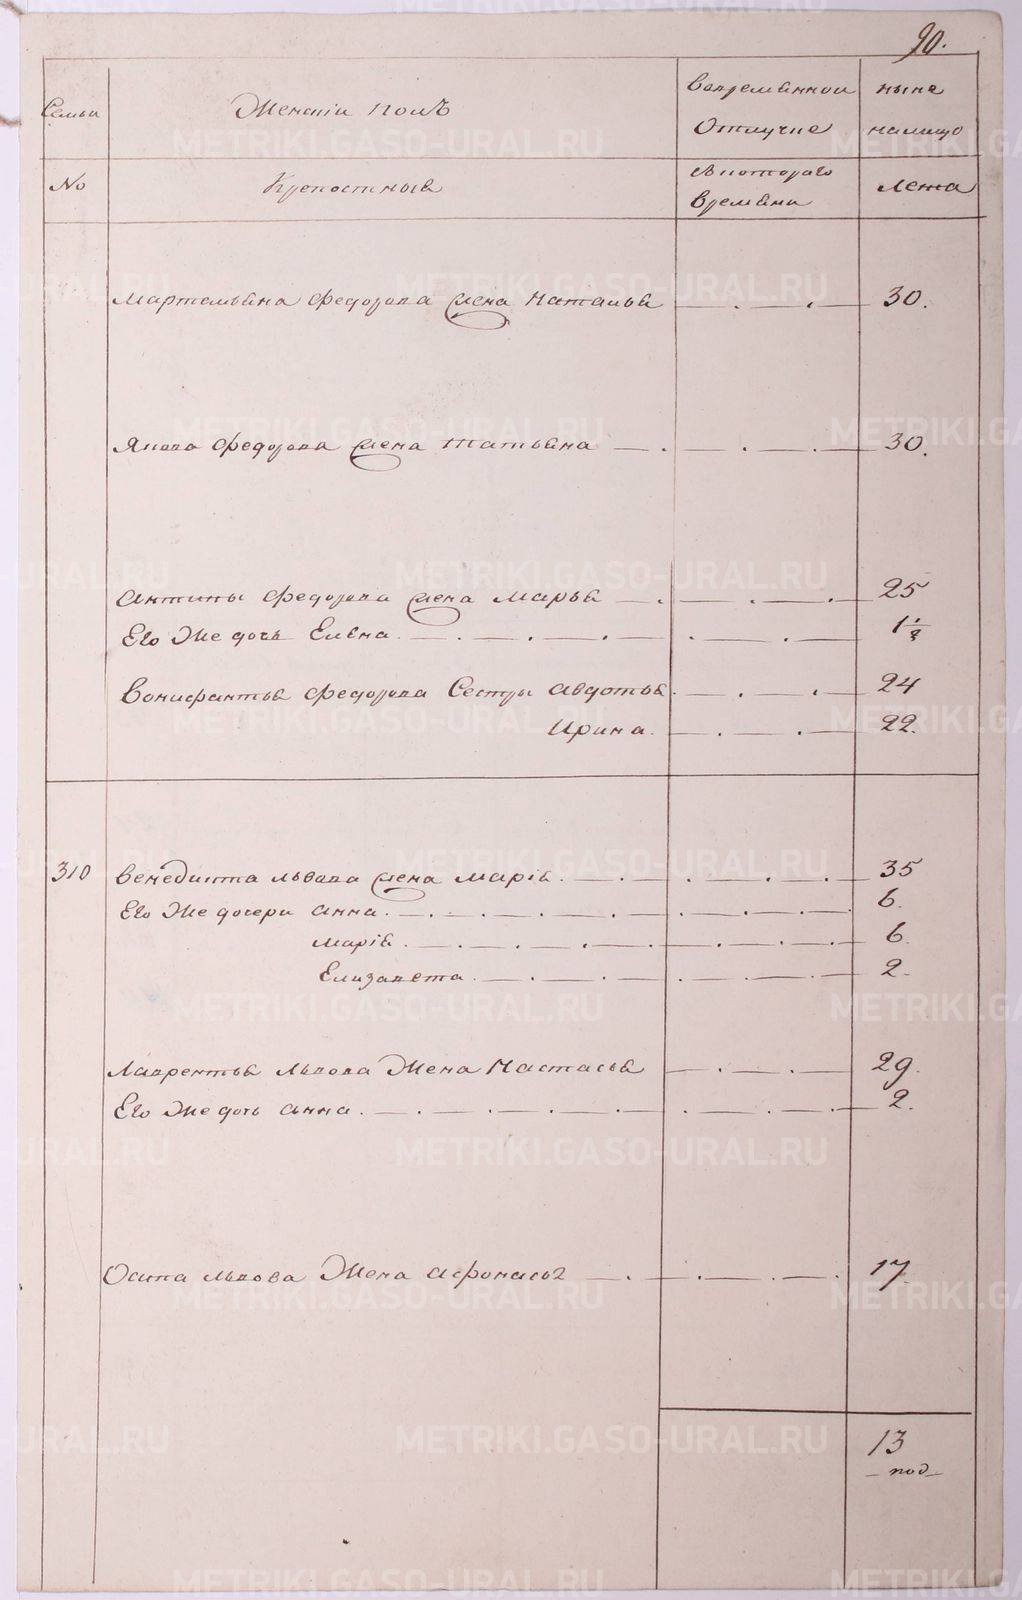 90.
Семьи
Женскій полъ
Вовременной
Отлучке
ныне
налицо
No
Крепостныя
Скотораго
Времяни
Лета
Мартемьяна Федорова жена Наталья 30.
Якова Федорова жена Татьяна 30.
Антипы Федорова жена Марья 25
Его Же дочь Елена 1 1/2
Вонифантья Федорова Сестры Авдотья 24
Ирина 22.
310 Венедикта Львова жена Марія 35
Его Же дочери Анна 6
Марія 6
Елизавета 2
Лаврентья Львова Жена Настасья 29
Его Же дочь Анна 2.
Осипа Львова Жена Афонасья 17
13
под
METRIKI.GASO-URAL.RU